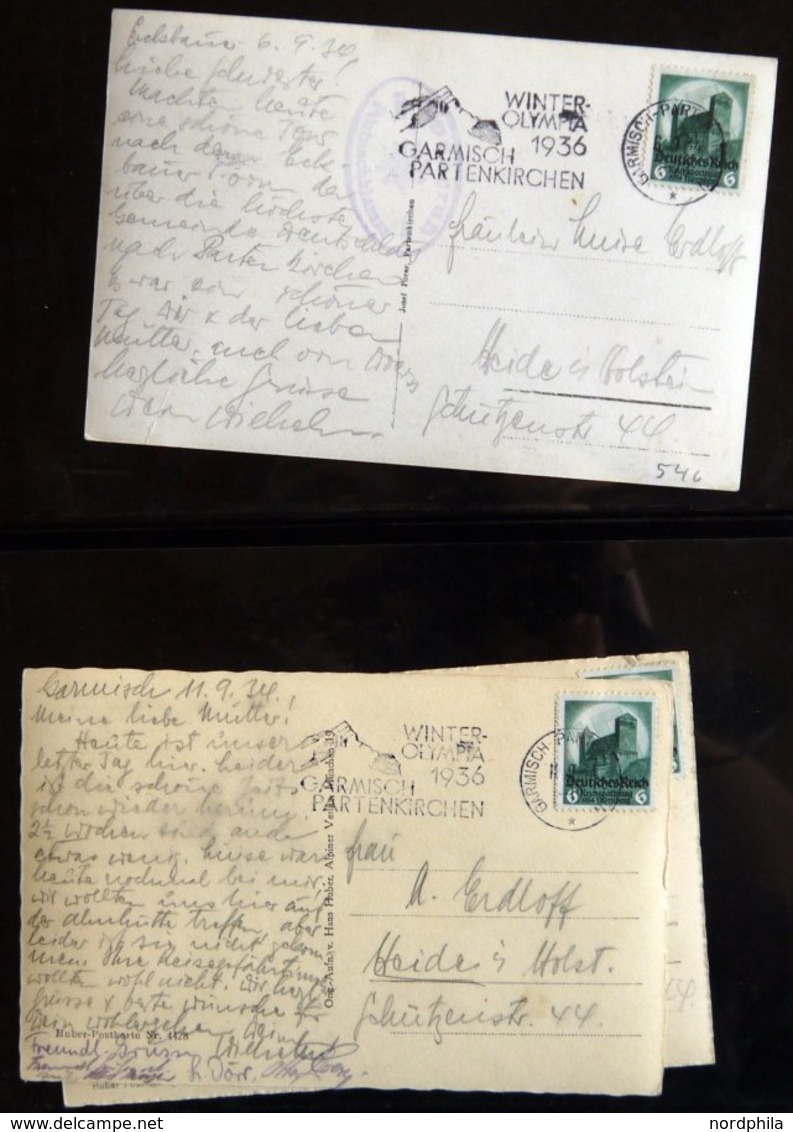 6.9.34
Liebe Schwester!
Machten heute
eine schöne Tour
nach dem Eck-
bauer von der
über die höchste
Gemeinde Deutschlds
nach Partenkirchen
Es war ein schöner
Tag Dir & der lieben
Mutter, auch von
herzliche Grüsse
Dein Wilhelm
Josef Partenkirchen
WINTER-
OLYMPIA
1936
GARMISCH
PARTENKIRCHEN
GARMISCH-PART
Deutsches Reich
6 6
Fräulein Luise Erdloff
Heide i/Holstein
Schützenstr 44.
546
Garmisch 11.9.34.
Meine liebe Mutter!
Heute ist unser
letzter Tag hier. Leider
ist die schöne Zeit
schon wieder herum.
2½ Wochen sind auch
etwas wenig. Luise war
heute nochmal bei mir.
wir wollten uns hier auf
der Almhütte treffen, aber
leider ist sie nicht gekom
men. Ihre Reisegefährtin
wollten wohl nicht. Wir
Grüsse & beste Wünsche für
Dein Wohlergehen Dein
Wilhelm
Huber-Postkarte Nr. 4428
Orig.-Aufn. v. Hans Huber, Alpiner Verlag, München 19
WINTER-
OLYMPIA
1936
GARMISCH
PARTENKIRCHEN
GARMISCH-PART
Deutsches Reich
6 Reichsparteitag 6
1934 Nürnberg
Frau
A. Erdloff
Heide i/Holst.
Schützenstr. 44.
www.delcampe.net
nordphila